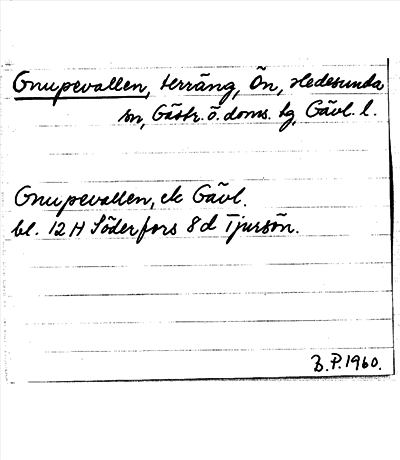 Gnupevallen, terräng, Ön, Hedesunda
sn, Gästr. ö. doms. tg, Gävl. l.
Gnupevallen, ek Gävl.
bl. 12 H Söderfors 8 d Tjursön.
B.P. 1960.